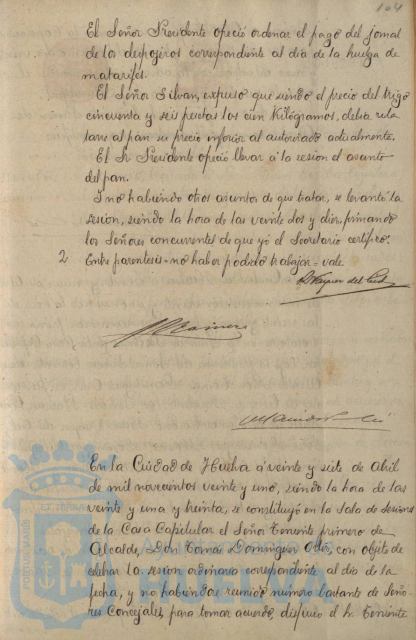 104
El Señor Presidente ofeció ordenar el pago del jornal
de los despojeros correspondiente al dia de la huelga de
matarifes.
El Señor Silvan, expuso que siendo el precio del trigo
cincuenta y seis pesetas los cien Kilógramos, debia
al pan su precio inferior al autorizado actualmente.
El Sr Presidente ofeció llevar á la sesion el asunto
del pan.
Y no habiendo otros asuntos de que tratar, se levantó la
sesion, siendo la hora de las veinte dos y diez, firmando
los Señores concurrentes de que yo el Secretario certifico.
2 Entre parentesis = no haber podido trabajar = vale
En la Ciudad de Huelva á veinte y siete de Abril
de mil novecientos veinte y uno, siendo la hora de las
veinte y una y treinta, se constituyó en la Sala de sesiones
de la Casa Capitular el Señor Teniente primero de
Alcalde, Don Tomás Dominguez Ortiz, con objeto de
celebrar la sesion ordinaria correspondiente al dia de la
fecha, y no habiendose reunido numero bastante de Seño-
res Concejales, para tomar acuerdo, dispuso el Sr. Teniente
HUELVA